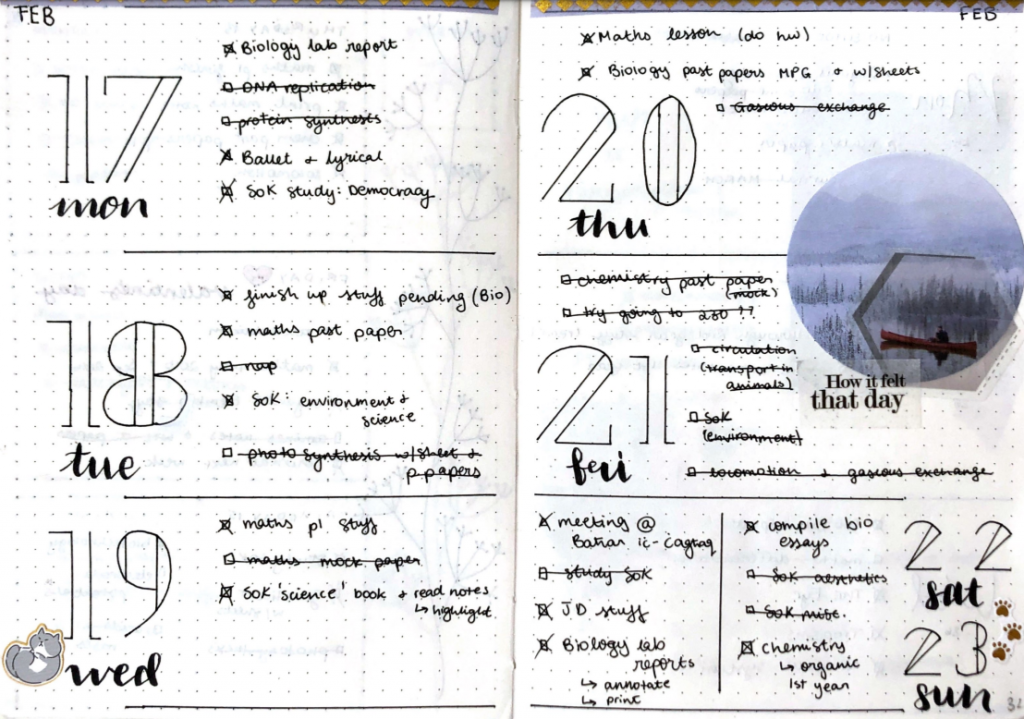 FEB
17
mon
Biology lab report
DNA replication
protein synthesis
Ballet & lyrical
SoK study: Democracy
18
tue
finish up stuff pending (Bio)
maths past paper
nap
SoK: environment &
science
photosynthesis w/sheet &
p-papers
19
wed
maths p1 stuff
maths mock paper
SoK 'science' book & read notes
↳ highlight
FEB
20
thu
Maths lesson (do hw)
Biology past papers MPG & w/sheets
Gaseous exchange
21
fri
chemistry past paper
(mock)
try going to 280 ??
circulation
(transport in
animals)
SoK
(environment)
locomation & gaseous exchange
How it felt
that day
meeting @
study SoK
JD stuff
Biology lab
reports
↳ annotate
↳ print
compile bio
essays
SoK aesthetics
SoK misc.
chemistry
↳ organic
1st year
22
sat
23
sun